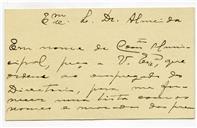 Exmo Sr. Dr. Almeida
Em nome da Comão Muni-
cipal, peço a V. Exª, que
ordene ao empregado da
Directoria, para me for-
necer uma lista com os
nomes e moradas dos